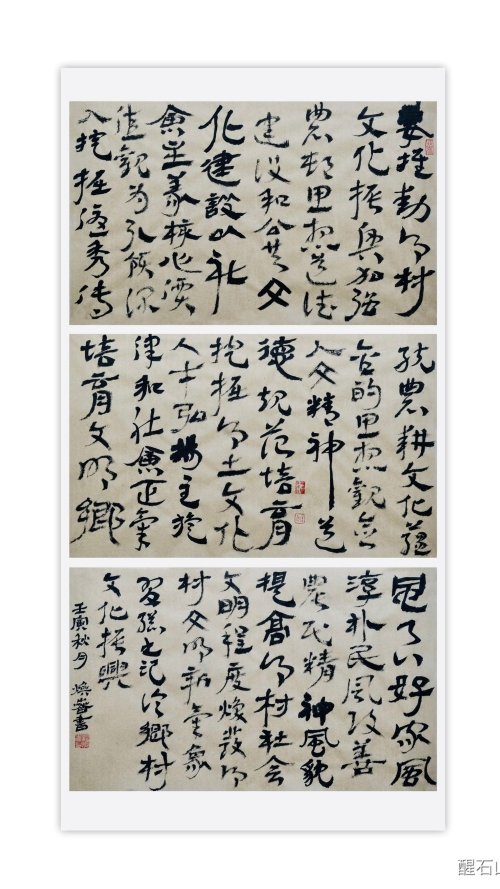 要推動乡村
文化振興加強
農村思想道德
建设和公共文
化建設以社
會主義核心價
值觀为引领深
入挖掘优秀傳
统農耕文化蕴
含的思想觀念
人文精神道
德規范培育
挖掘乡土文化
人才弘揚主旋
律和社會正氣
培育文明鄉
風良好家風
淳朴民風改善
農民精神風貌
提高乡村社会
文明程度焕發乡
村文明新氣象
習總书记论鄉村
文化振興
壬寅秋月 書
醒石